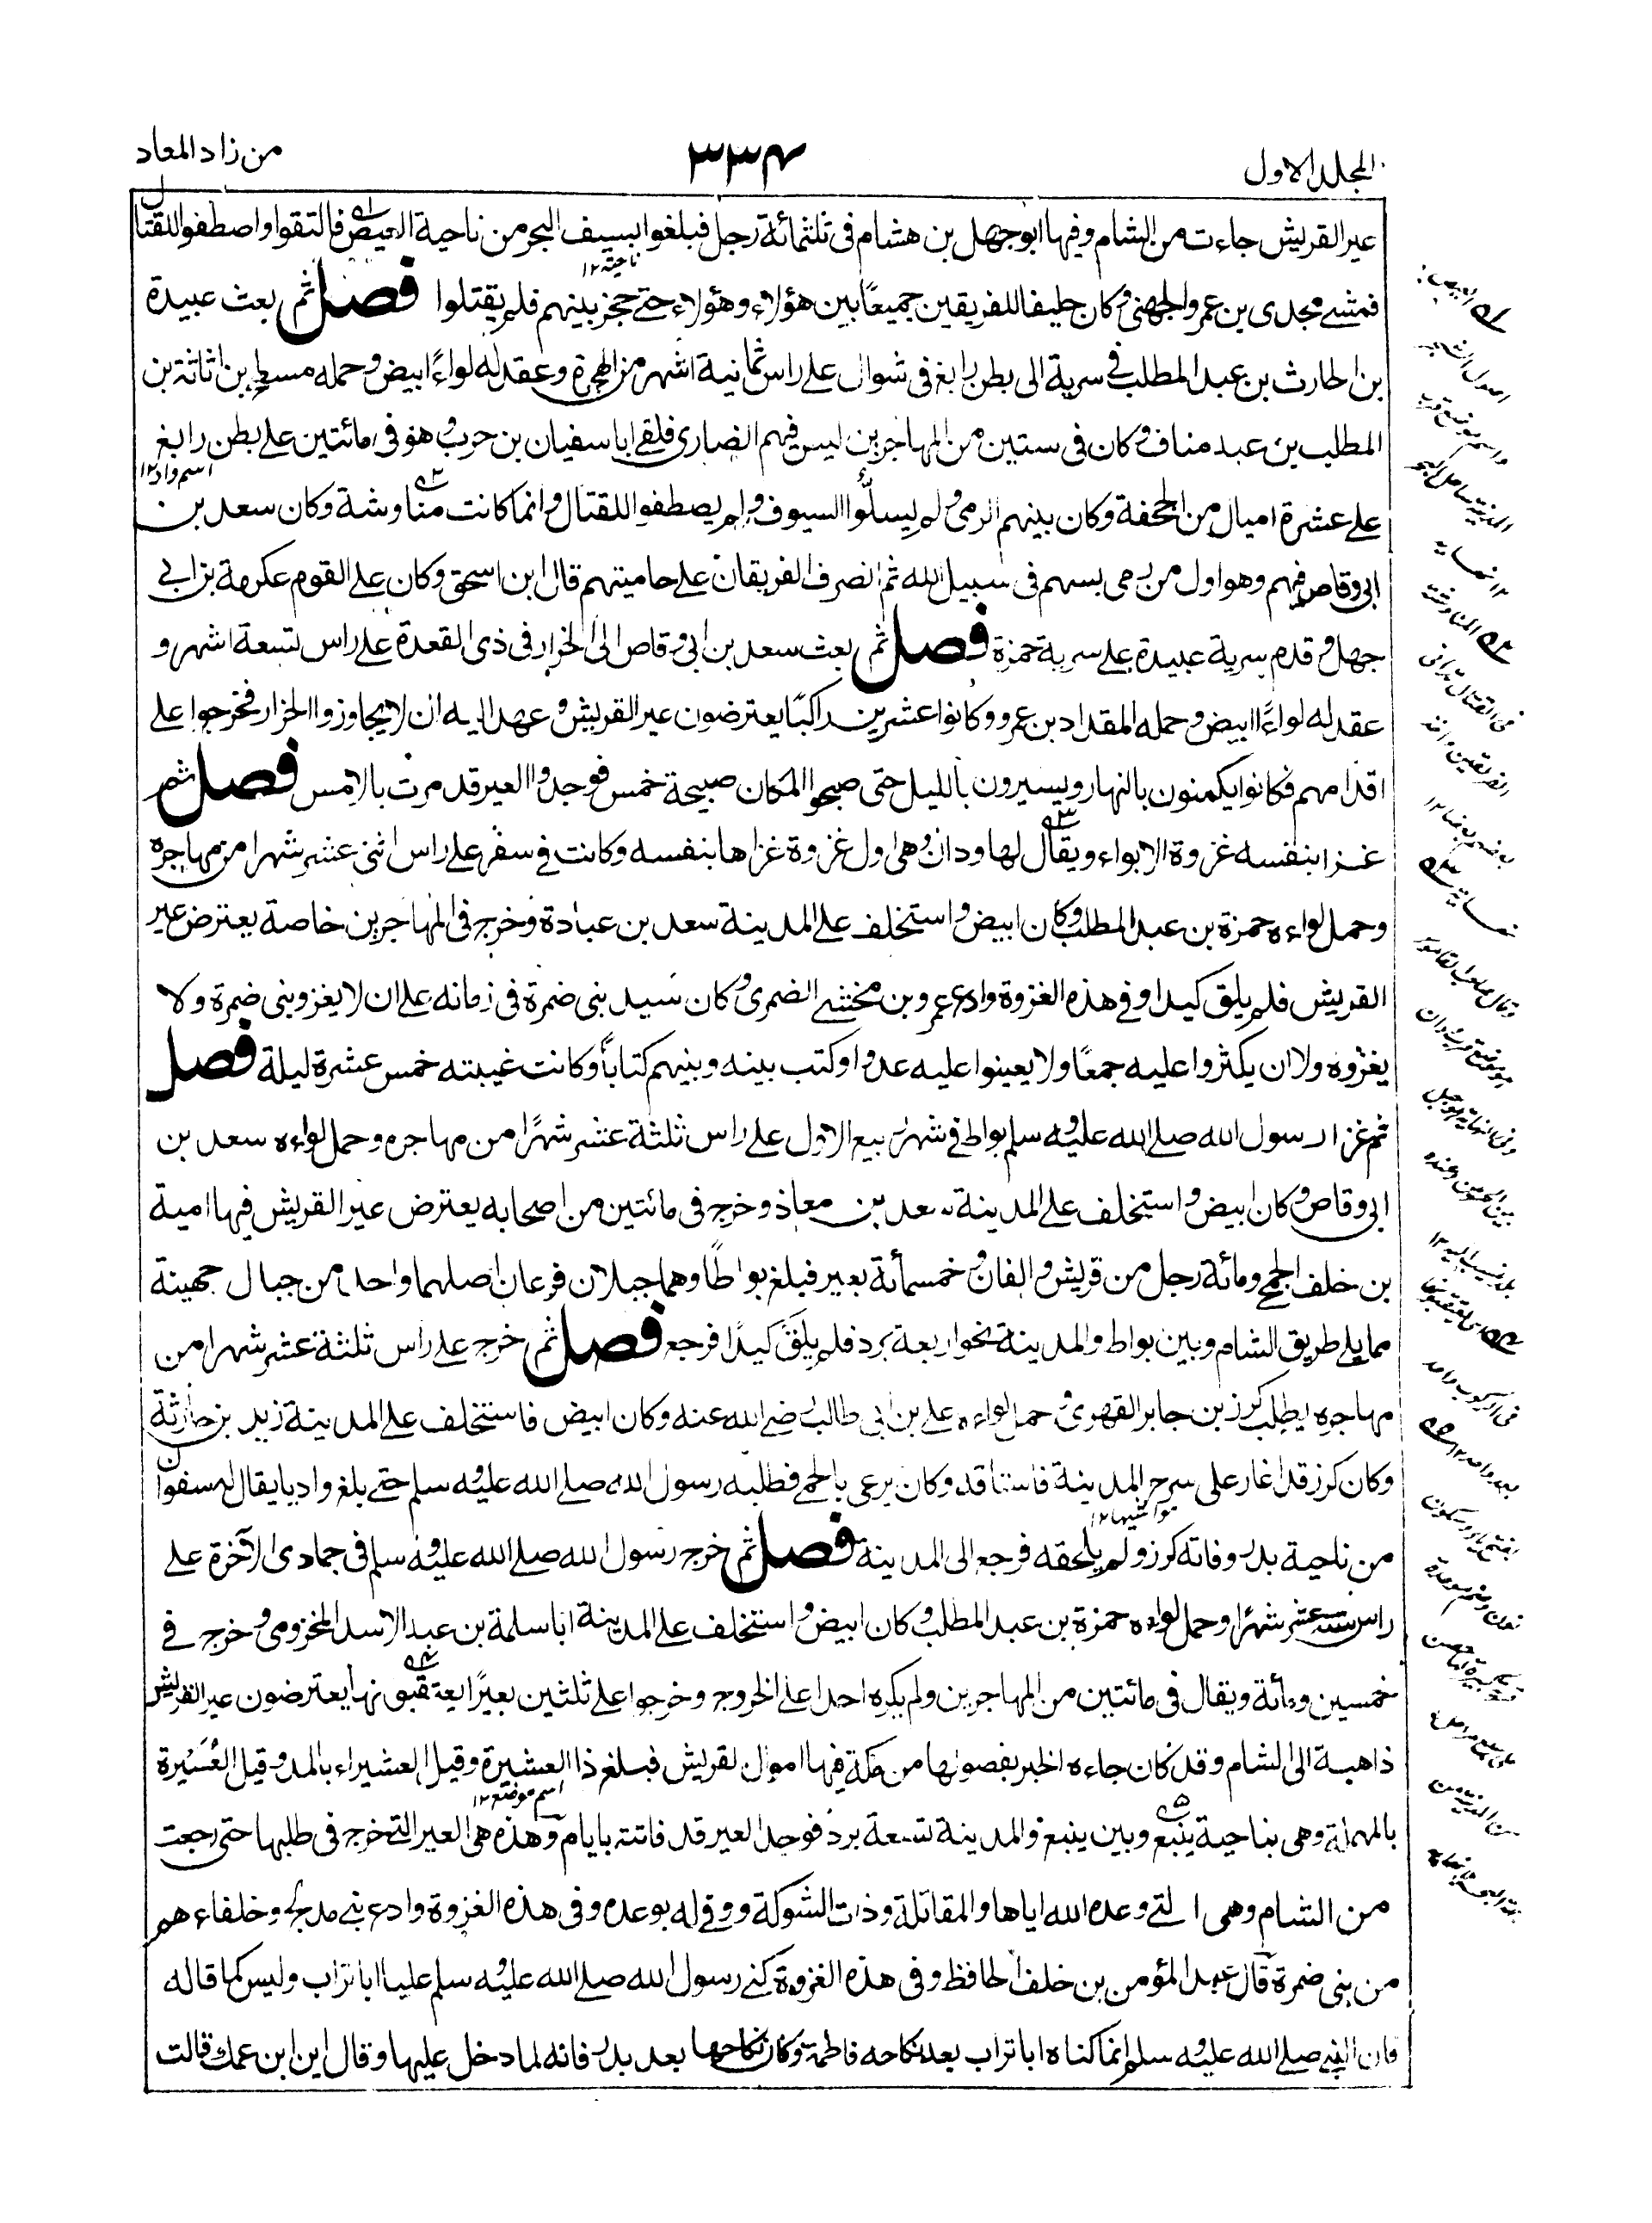 المجلد الاول
٣٣٤
من زاد المعاد
عير القريش جاءت من الشام وفيها ابوجهل بن هشام فى ثلثمائة رجل فبلغوا سيف البحر من ناحية العيص فالتقوا واصطفوا للقتال
ناحية ١٢
فمشى مجدى بن عمرو الجهنى وكان حليفا للفريقين جميعًا بين هؤلاء وهؤلاء حتى حجز بينهم فلم يقتلوا فصل ثم بعث عبيدة
بن الحارث بن عبد المطلب فى سرية الى بطن رابغ فى شوال على راس ثمانية اشهر من الهجرة وعقد له لواءً ابيض وحمله مسطح بن اثاثة بن
المطلب بن عبد مناف وكان فى ستين من المهاجرين ليس فيهم انصارى فلقى ابا سفيان بن حرب وهو فى مائتين على بطن رابغ
اسم واد ١٢
على عشرة اميال من الجحفة وكان بينهم الرمى ولم يسلّوا السيوف ولم يصطفوا للقتال وانما كانت مناوشة وكان سعد بن
ابى وقاص فيهم وهو اول من رمى بسهم فى سبيل الله ثم انصرف الفريقان على حاميتهم قال ابن اسحق وكان على القوم عكرمة بن ابى
جهل وقدم سرية عبيدة على سرية حمزة فصل ثم بعث سعد بن ابى وقاص الى الخرار فى ذى القعدة على راس تسعة اشهر و
عقد له لواءً ابيض وحمله المقداد بن عمرو وكانوا عشرين راكبًا يعترضون عير القريش وعهد اليه ان لا يجاوزوا الخرار فخرجوا على
اقدامهم فكانوا يكمنون بالنهار ويسيرون بالليل حتى صبحوا المكان صبيحة خمس فوجدوا العير قد مرت بالامس فصل ثم
غزا بنفسه غزوة الابواء ويقال لها ودان وهى اول غزوة غزاها بنفسه وكانت فى سفر على راس اثنى عشر شهرا من مهاجره
وحمل لواءه حمزة بن عبد المطلب وكان ابيض واستخلف على المدينة سعد بن عبادة وخرج فى المهاجرين خاصة يعترض عير
القريش فلم يلق كيدا وفى هذه الغزوة وادع عمرو بن مخشى الضمرى وكان سيد بنى ضمرة فى زمانه على ان لا يغزو بنى ضمرة ولا
يغزوه ولا ان يكثروا عليه جمعًا ولا يعينوا عليه عدوا وكتب بينه وبينهم كتابًا وكانت غيبته خمس عشرة ليلة فصل
ثم غزا رسول الله صلى الله عليه وسلم بواط فى شهر ربيع الاول على راس ثلثة عشر شهرًا من مهاجره وحمل لواءه سعد بن
ابى وقاص وكان ابيض واستخلف على المدينة سعد بن معاذ وخرج فى مائتين من اصحابه يعترض عير القريش فيها امية
بن خلف الجمحى ومائة رجل من قريش والفان وخمسمأئة بعير فبلغ بواطًا وهما جبلان فرعان اصلهما واحد من جبال جهينة
مما يلى طريق الشام وبين بواط والمدينة نحو اربعة برد فلم يلق كيدًا فرجع فصل ثم خرج على راس ثلثة عشر شهرا من
مهاجره يطلب كرز بن جابر الفهرى وحمل لواءه على بن ابى طالب رضى الله عنه وكان ابيض فاستخلف على المدينة زيد بن حارثة
وكان كرز قد اغار على سرح المدينة فاستاقه وكان يرعى بالحمى فطلبه رسول الله صلى الله عليه وسلم حتى بلغ واديا يقال له سفوان
مواشيها ١٢
من ناحية بدر وفاته كرز ولم يلحقه فرجع الى المدينة فصل ثم خرج رسول الله صلى الله عليه وسلم فى جمادى الآخرة على
راس ستة عشر شهرًا وحمل لواءه حمزة بن عبد المطلب وكان ابيض واستخلف على المدينة ابا سلمة بن عبد الاسد المخزومى وخرج فى
خمسين ومأئة ويقال فى مائتين من المهاجرين ولم يكره احدا على الخروج وخرجوا على ثلثين بعيرًا يعتقبونها يعترضون عير القريش
ذاهبة الى الشام وقد كان جاءه الخبر بفصولها من مكة فيها اموال لقريش فبلغ ذا العشيرة وقيل العشيراء بالمد وقيل العُسَيرة
اسم موضع ١٢
بالمهملة وهى بناحية ينبع وبين ينبع والمدينة تسعة برد فوجد العير قد فاتته بايام وهذه هى العير التى خرج فى طلبها حتى رجعت
من الشام وهى التى وعده الله اياها والمقاتلة وذات الشوكة ووفى له بوعده وفى هذه الغزوة وادع بنى مدلج وحلفاءهم
من بنى ضمرة قال عبد المؤمن بن خلف الحافظ وفى هذه الغزوة كنى رسول الله صلى الله عليه وسلم عليا ابا تراب وليس كما قاله
فان النبى صلى الله عليه وسلم انما كناه ابا تراب بعد نكاحه فاطمة وكان نكاحها بعد بدر فانه لما دخل عليها وقال اين ابن عمك قالت